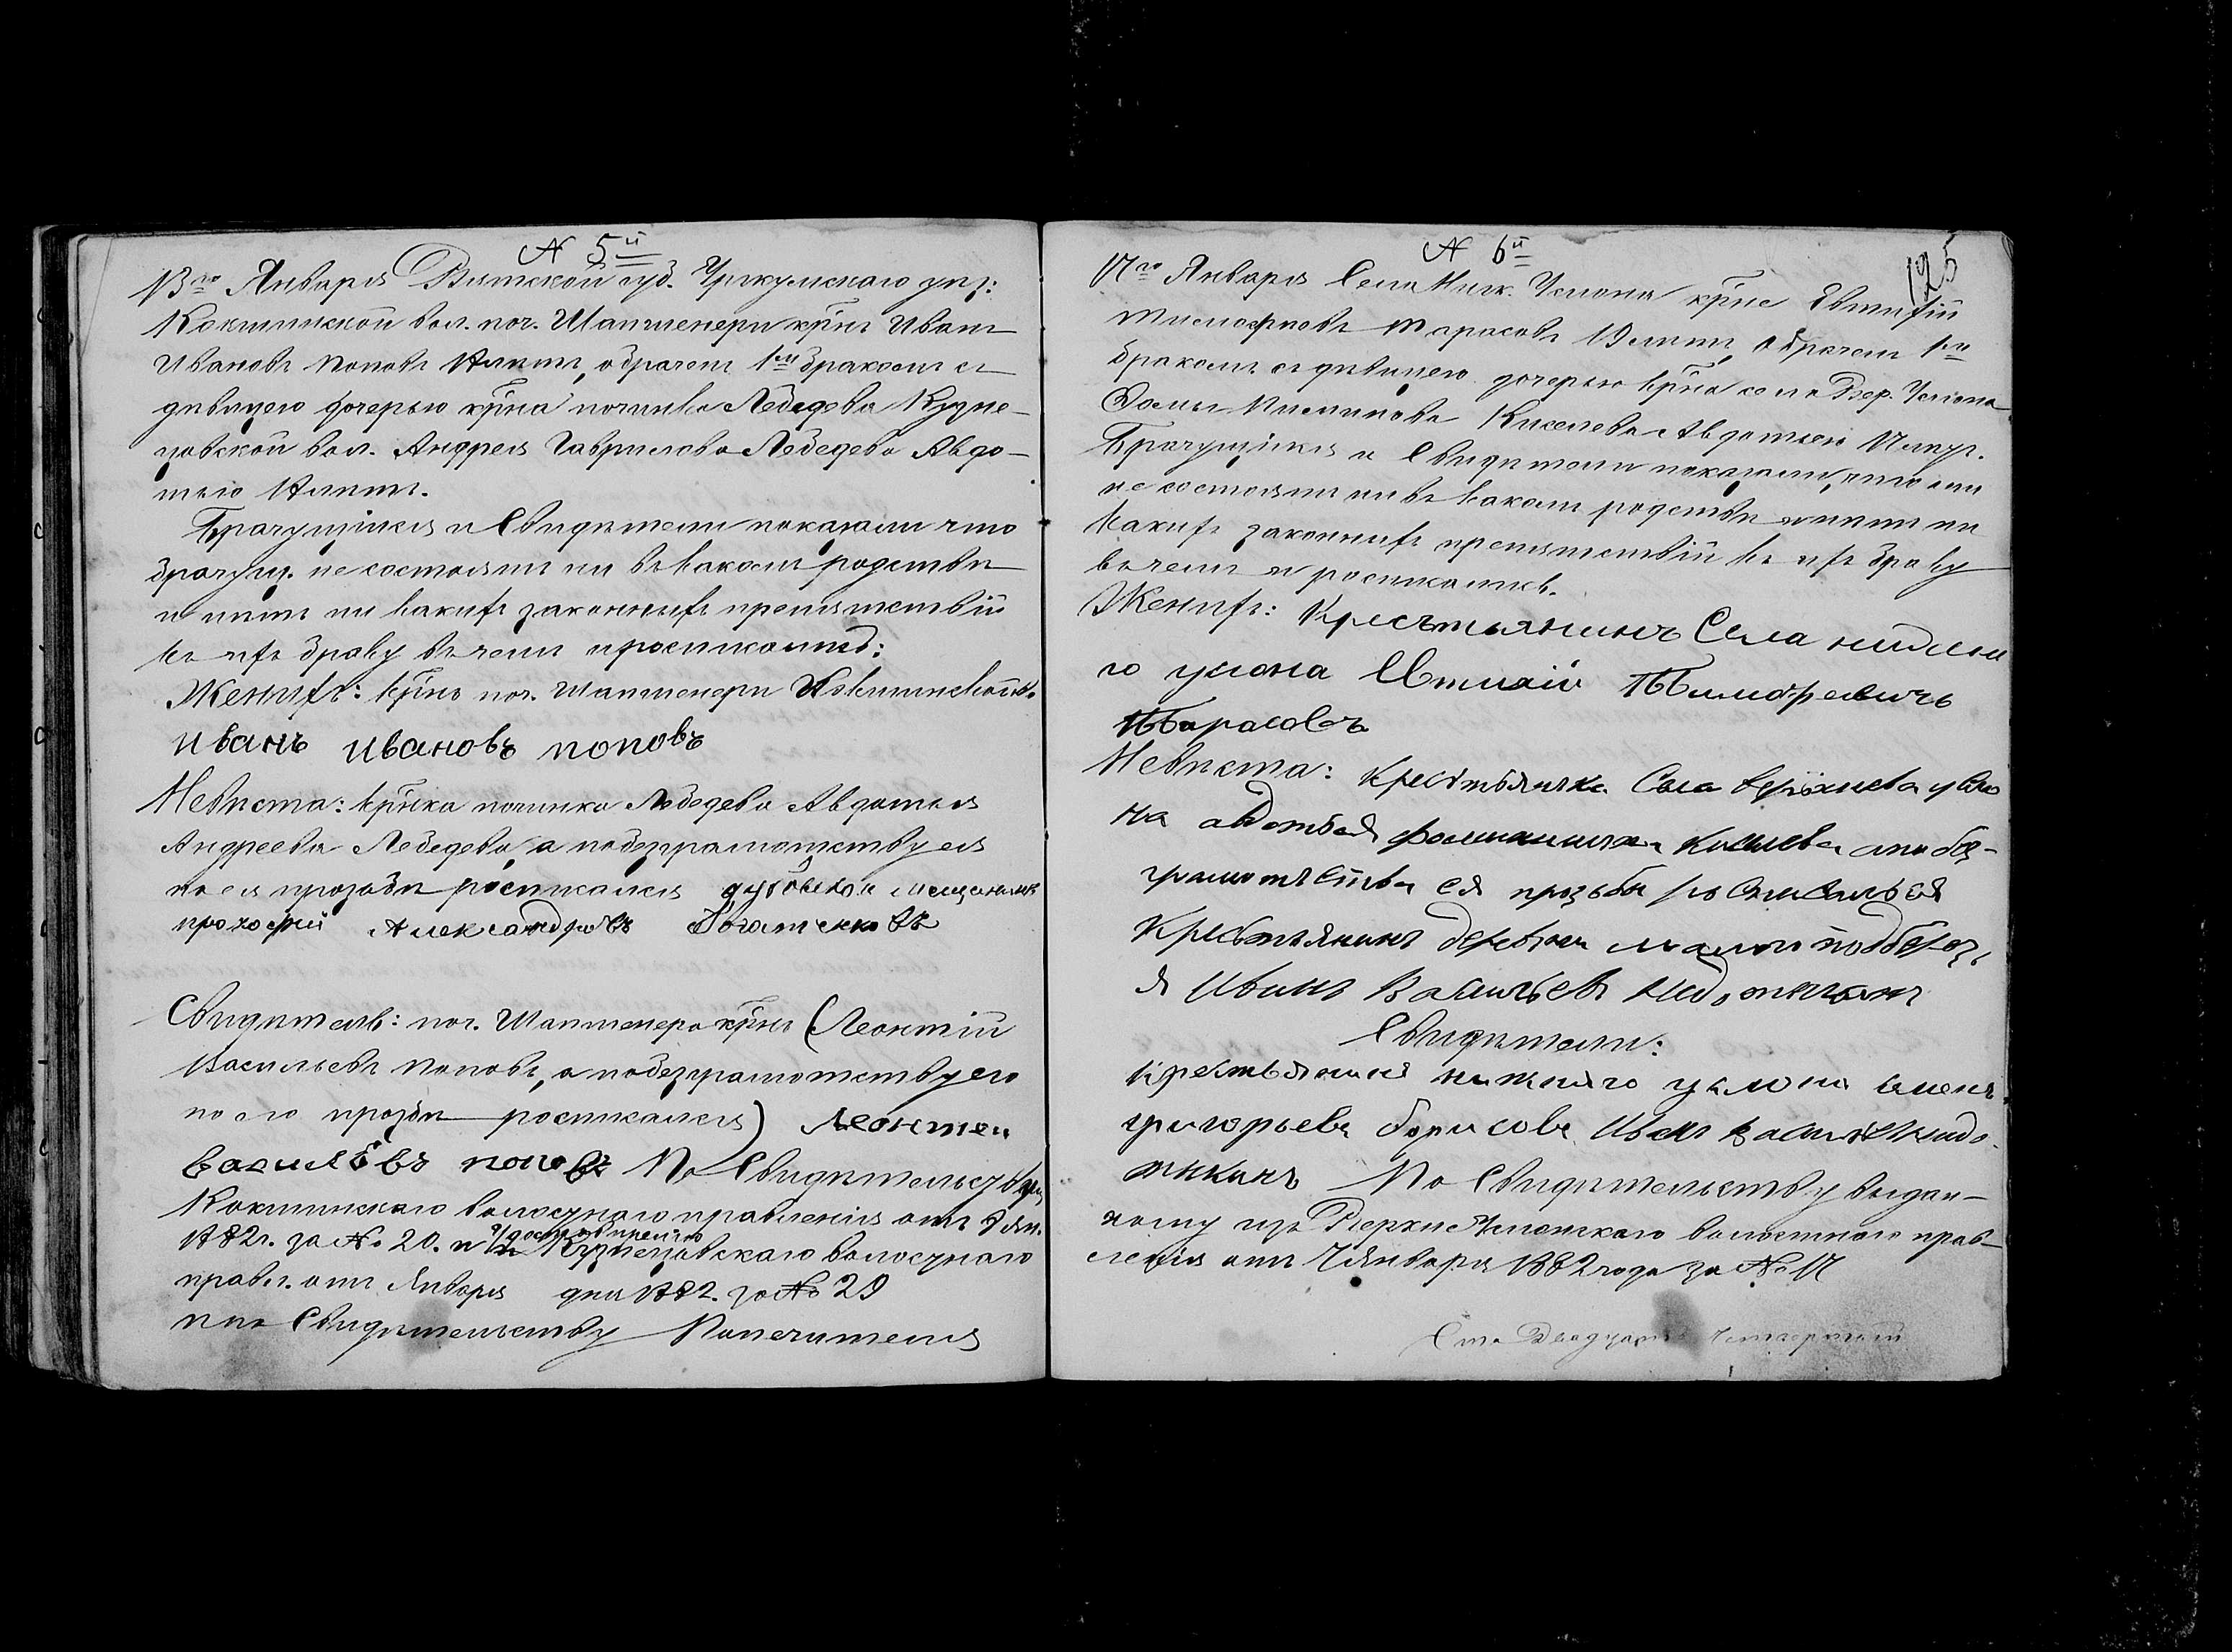 № 5й
13го Января Вятской губ. Уржумскаго уѣз:
Кокшинской вол. поч. Шапшенери кр͠нъ Иванъ
Ивановъ Поповъ лѣтъ, обрачен 1мъ бракомъ съ
дѣвицею дочерью кр͠на починка Лебедева Кузне-
цовской вол. Андрея Гаврилова Лебедева Авдо-
тьею лѣтъ.
Брачущіися и Свидѣтели показали что
брачущ. не состоятъ ни въ какомъ родствѣ
и нѣтъ ни какихъ законныхъ препятствій
къ ихъ браку въ чемъ и росписались:
Женихъ: кр͠нъ поч. Шапшенери Кокшинской в.
иванъ ивановъ поповъ
Невѣста: кр͠нка починка Лебедева Авдотья
Андреева Лебедева, а по безграмотству ея
по ея прозьбѣ росписался мещанинъ
прохофий Александровъ
Свидѣтель: поч. Шапшенера кр͠нъ (Леонтій
Васильевъ Поповъ, а по безграмотству его
по его прозьбѣ росписался) Леонтеи
василѣвъ поповъ По Свидѣтельству
Кокшинскаго волостнаго правленія отъ 9 Ян.
1882г. за № 20. и удостовѣренію Кузнецовскаго волостнаго
правл. отъ Января дня 1882. за № 29
и по Свидѣтельству Попечителя
№ 6й
125
17го Января Села Ниж. Услона кр͠не Евтифій
Тимофѣевъ Тарасовъ 18 лѣтъ, обрачен 1мъ
бракомъ съ дѣвицею дочерью кр͠на села Вер. Услона
Фомы Киселева Авдотьею
Брачущіися и Свидѣтели показали, что они
не состоятъ ни въ какомъ родствѣ и нѣтъ ни
какихъ законныхъ препятствій къ ихъ браку
въ чемъ и росписались.
Женихъ: Кресьтьянинъ Села нидьня
го услона Тимофеевичъ
Тарасовъ
Невѣста: крестьянка Села верхнева усло
на авдотья Киселева а по без-
грамотьству ея прозьбы росписалься
Крестьянинъ деревни малои подберез
я Иванъ Васильевъ
Свидѣтели:
крестьянинъ нижняго услона семенъ
григорьевъ борисовъ Иванъ Васильев
По Свидѣтельству выдан-
ному изъ Верхне Услонскаго волостнаго прав-
ленія отъ 7 Января 1882 года за № 17
Сто Двадцать Четвертый